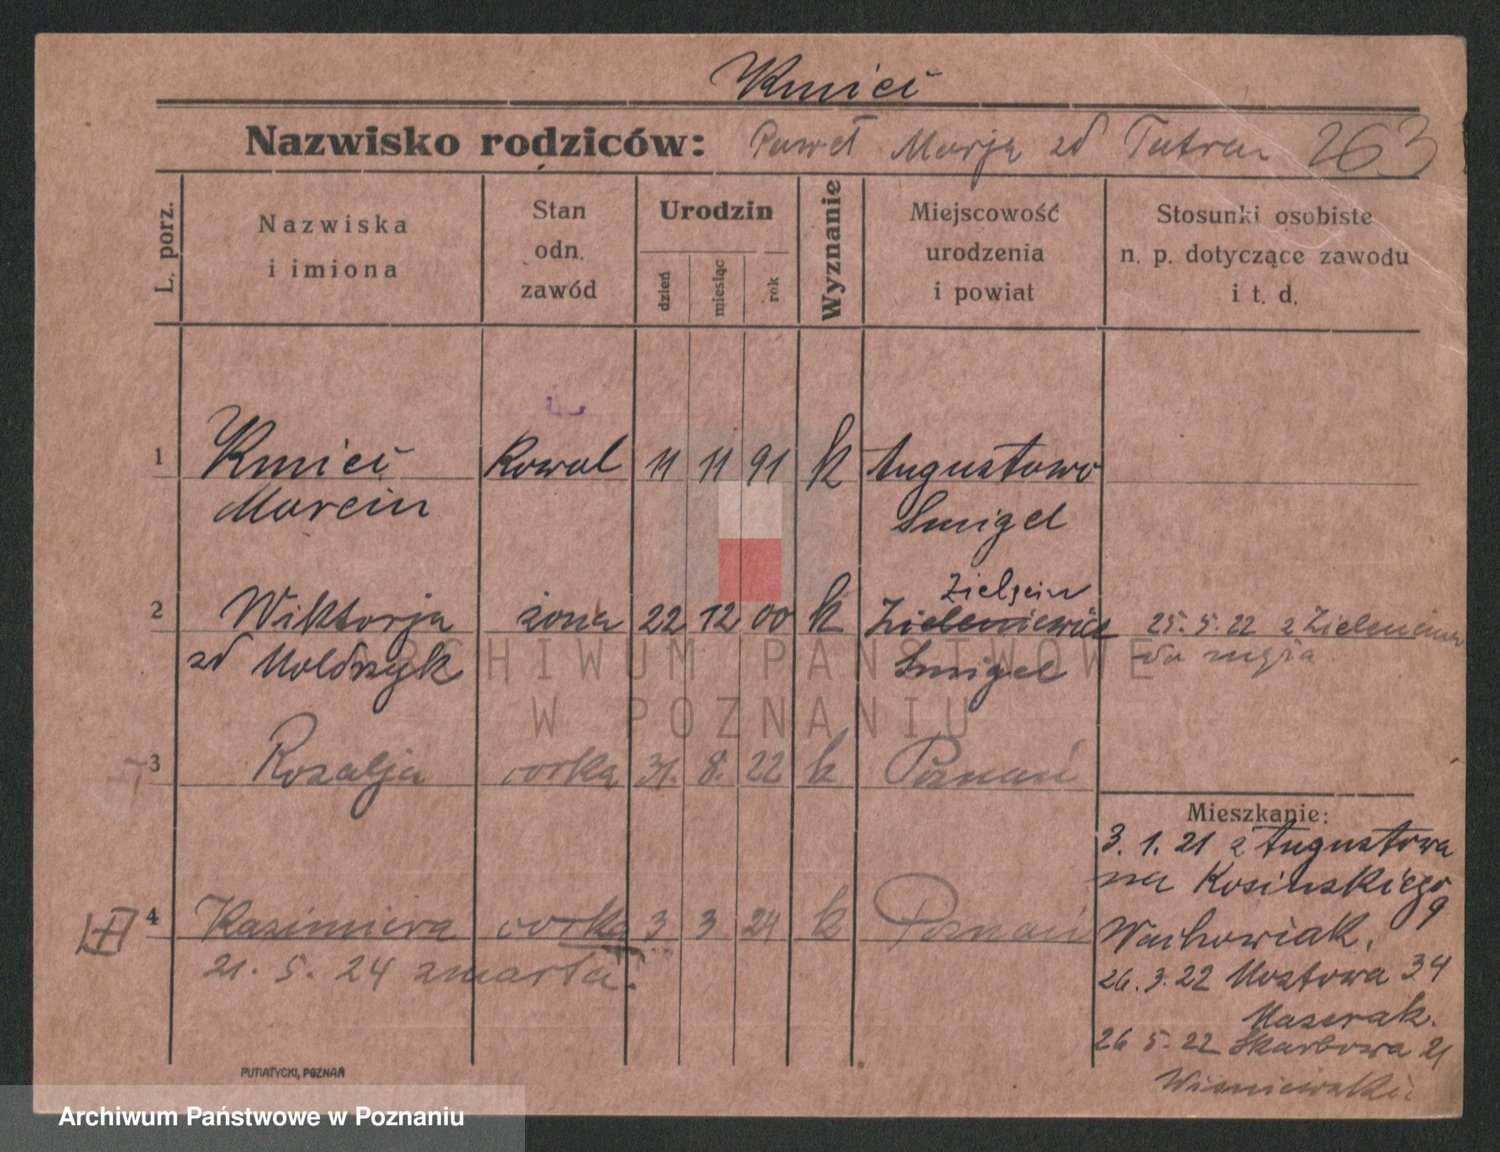 Kmieć
Nazwisko rodziców: Paweł Marja zd Tatra 263
L. porz.
Nazwiska
i imiona
Stan
odn.
zawód
Urodzin
dzień
miesiąc
rok
Wyznanie
Miejscowość
urodzenia
i powiat
Stosunki osobiste
n. p. dotyczące zawodu
i t. d.
1 Kmieć Kowal 11 11 91 k Augustowo
Marcin Smigel
Zielęcin
2 Wiktorja żona 22 12 00 k Zieleniewice 25. 5. 22 z Zielencina
zd Moldrzyk Smigel do męża
3 Rozalja córka 31. 8. 22 k Poznań
Mieszkanie:
3. 1. 21 z Augustowa
na Kosinskiego 9
4 Kazimiera córka 3 3 24 k Poznań
21. 5. 24 zmarła.
Wachowiak.
26. 3. 22 Mostowa 34
26 5. 22 Skarbowa 21
PUTIATYCKI, POZNAŃ
ARCHIWUM PAŃSTWOWE
W POZNANIU
Archiwum Państwowe w Poznaniu